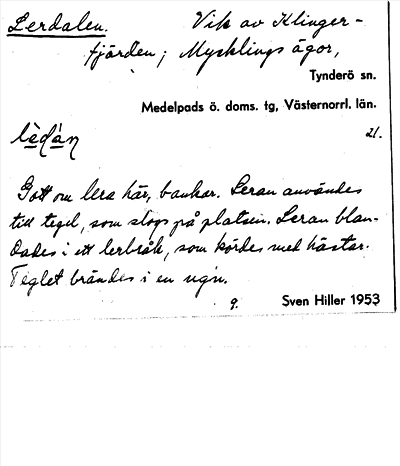 Lerdalen. Vik av Klinger-
fjärden; Mycklings ägor,
Tynderö sn.
Medelpads ö. doms. tg, Västernorrl. län.
lèdàn 21.
Gott om lera här, bankar. Leran användes
till tegel, som slogs på platsen. Leran blan-
dades i ett lerbråk, som kördes med hästar.
Teglet brändes i en ugn.
9. Sven Hiller 1953